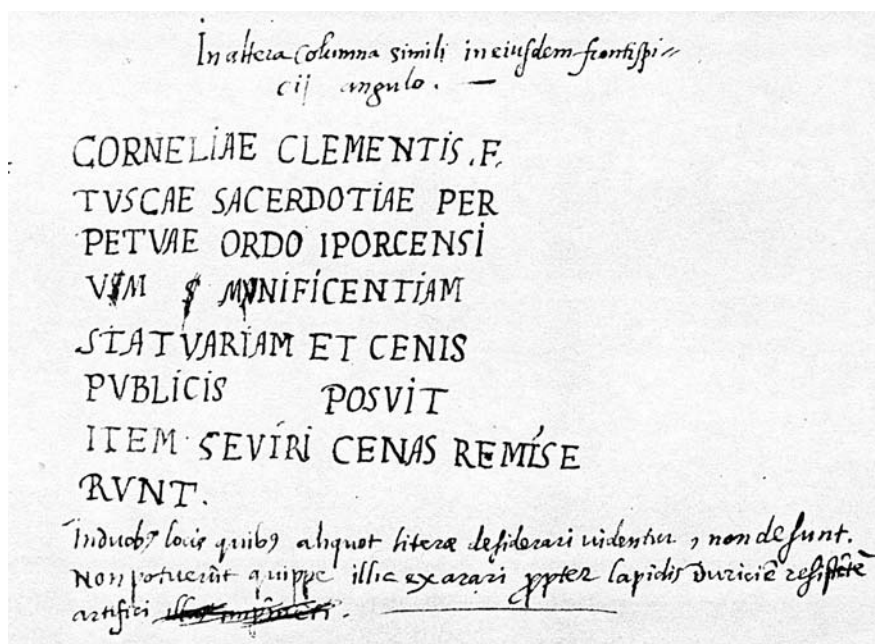 In altera columna simili in eiusdem frontispi=
cij angulo. —
CORNELIAE CLEMENTIS . F.
TVSCAE SACERDOTIAE PER
PETVAE ORDO IPORCENSI
VM MVNIFICENTIAM
STATVARIAM ET CENIS
PVBLICIS POSVIT
ITEM SEVIRI CENAS REMISE
RVNT.
Induobꝰ locis quibꝰ aliquot literæ desiderari uidentur, non desunt.
Non potuerūt quippe illic exarari ꝓpter lapidis duriciē resistētē
artifici